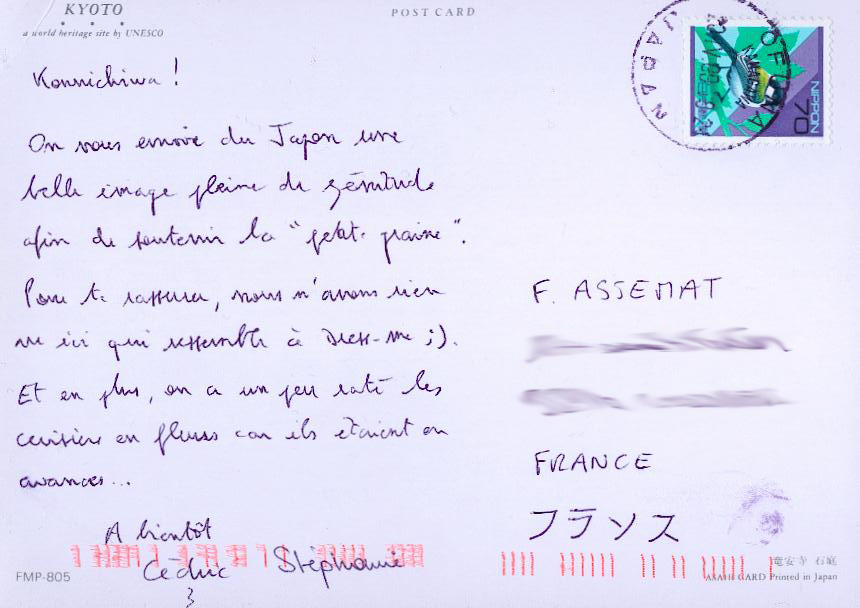 KYOTO
a world heritage site by UNESCO
POST CARD
NIPPON
70
JAPAN
Konnichiwa !
On vous envoie du Japon une
belle image pleine de zénitude
afin de soutenir la "petite graine".
Pour te rassurer, nous n'avons rien
vu ici qui ressemble à Dress-me ;).
Et en plus, on a un peu raté les
cerisiers en fleurs car ils étaient en
avances...
A bientôt
Cédric Stéphanie
F. ASSEMAT
FRANCE
フランス
FMP-805
竜安寺 石庭
ASAHI CARD Printed in Japan